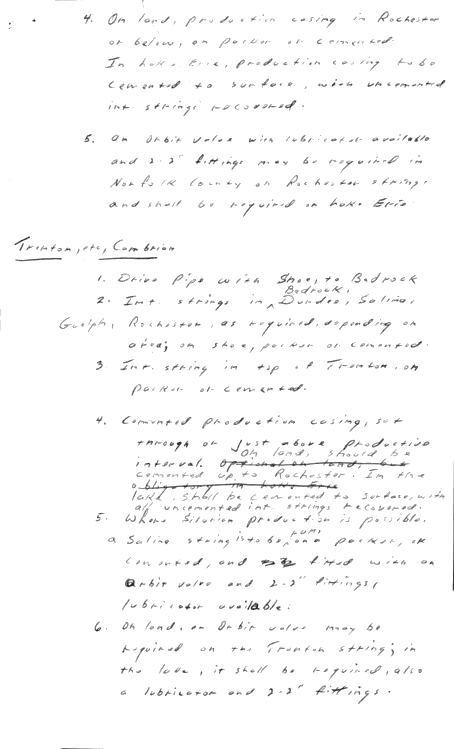 4. On land, production casing in Rochester
or below, on packer or cemented.
In Lake Erie, production casing to be
cemented to surface, with uncemented
int. strings recovered.
5. An Orbit valve with lubricator available
and 2-2" fittings may be required in
Norfolk County on Rochester strings
and shall be required on Lake Erie.
Trenton, etc, Cambrian
1. Drive Pipe with Shoe, to Bedrock
Bedrock,
2. Int. strings in Dundee, Salina,
Guelph, Rochester, as required, depending on
area; on shoe, packer or cemented.
3 Int. string in top of Trenton, on
packer or cemented.
4. Cemented production casing, set
through or just above productive
On land, should be
interval. Optional on land, but
cemented up to Rochester. In the
obligatory in Lake Erie
lake, shall be cemented to surface, with
all uncemented int. strings recovered.
5. Where Silurian production is possible,
run,
a Salina string is to be on a packer, or
cemented, and fitted with an
Orbit valve and 2-2" fittings,
lubricator available.
6. On land, an Orbit valve may be
required on the Trenton string; in
the lake, it shall be required, also
a lubricator and 2-2" fittings.